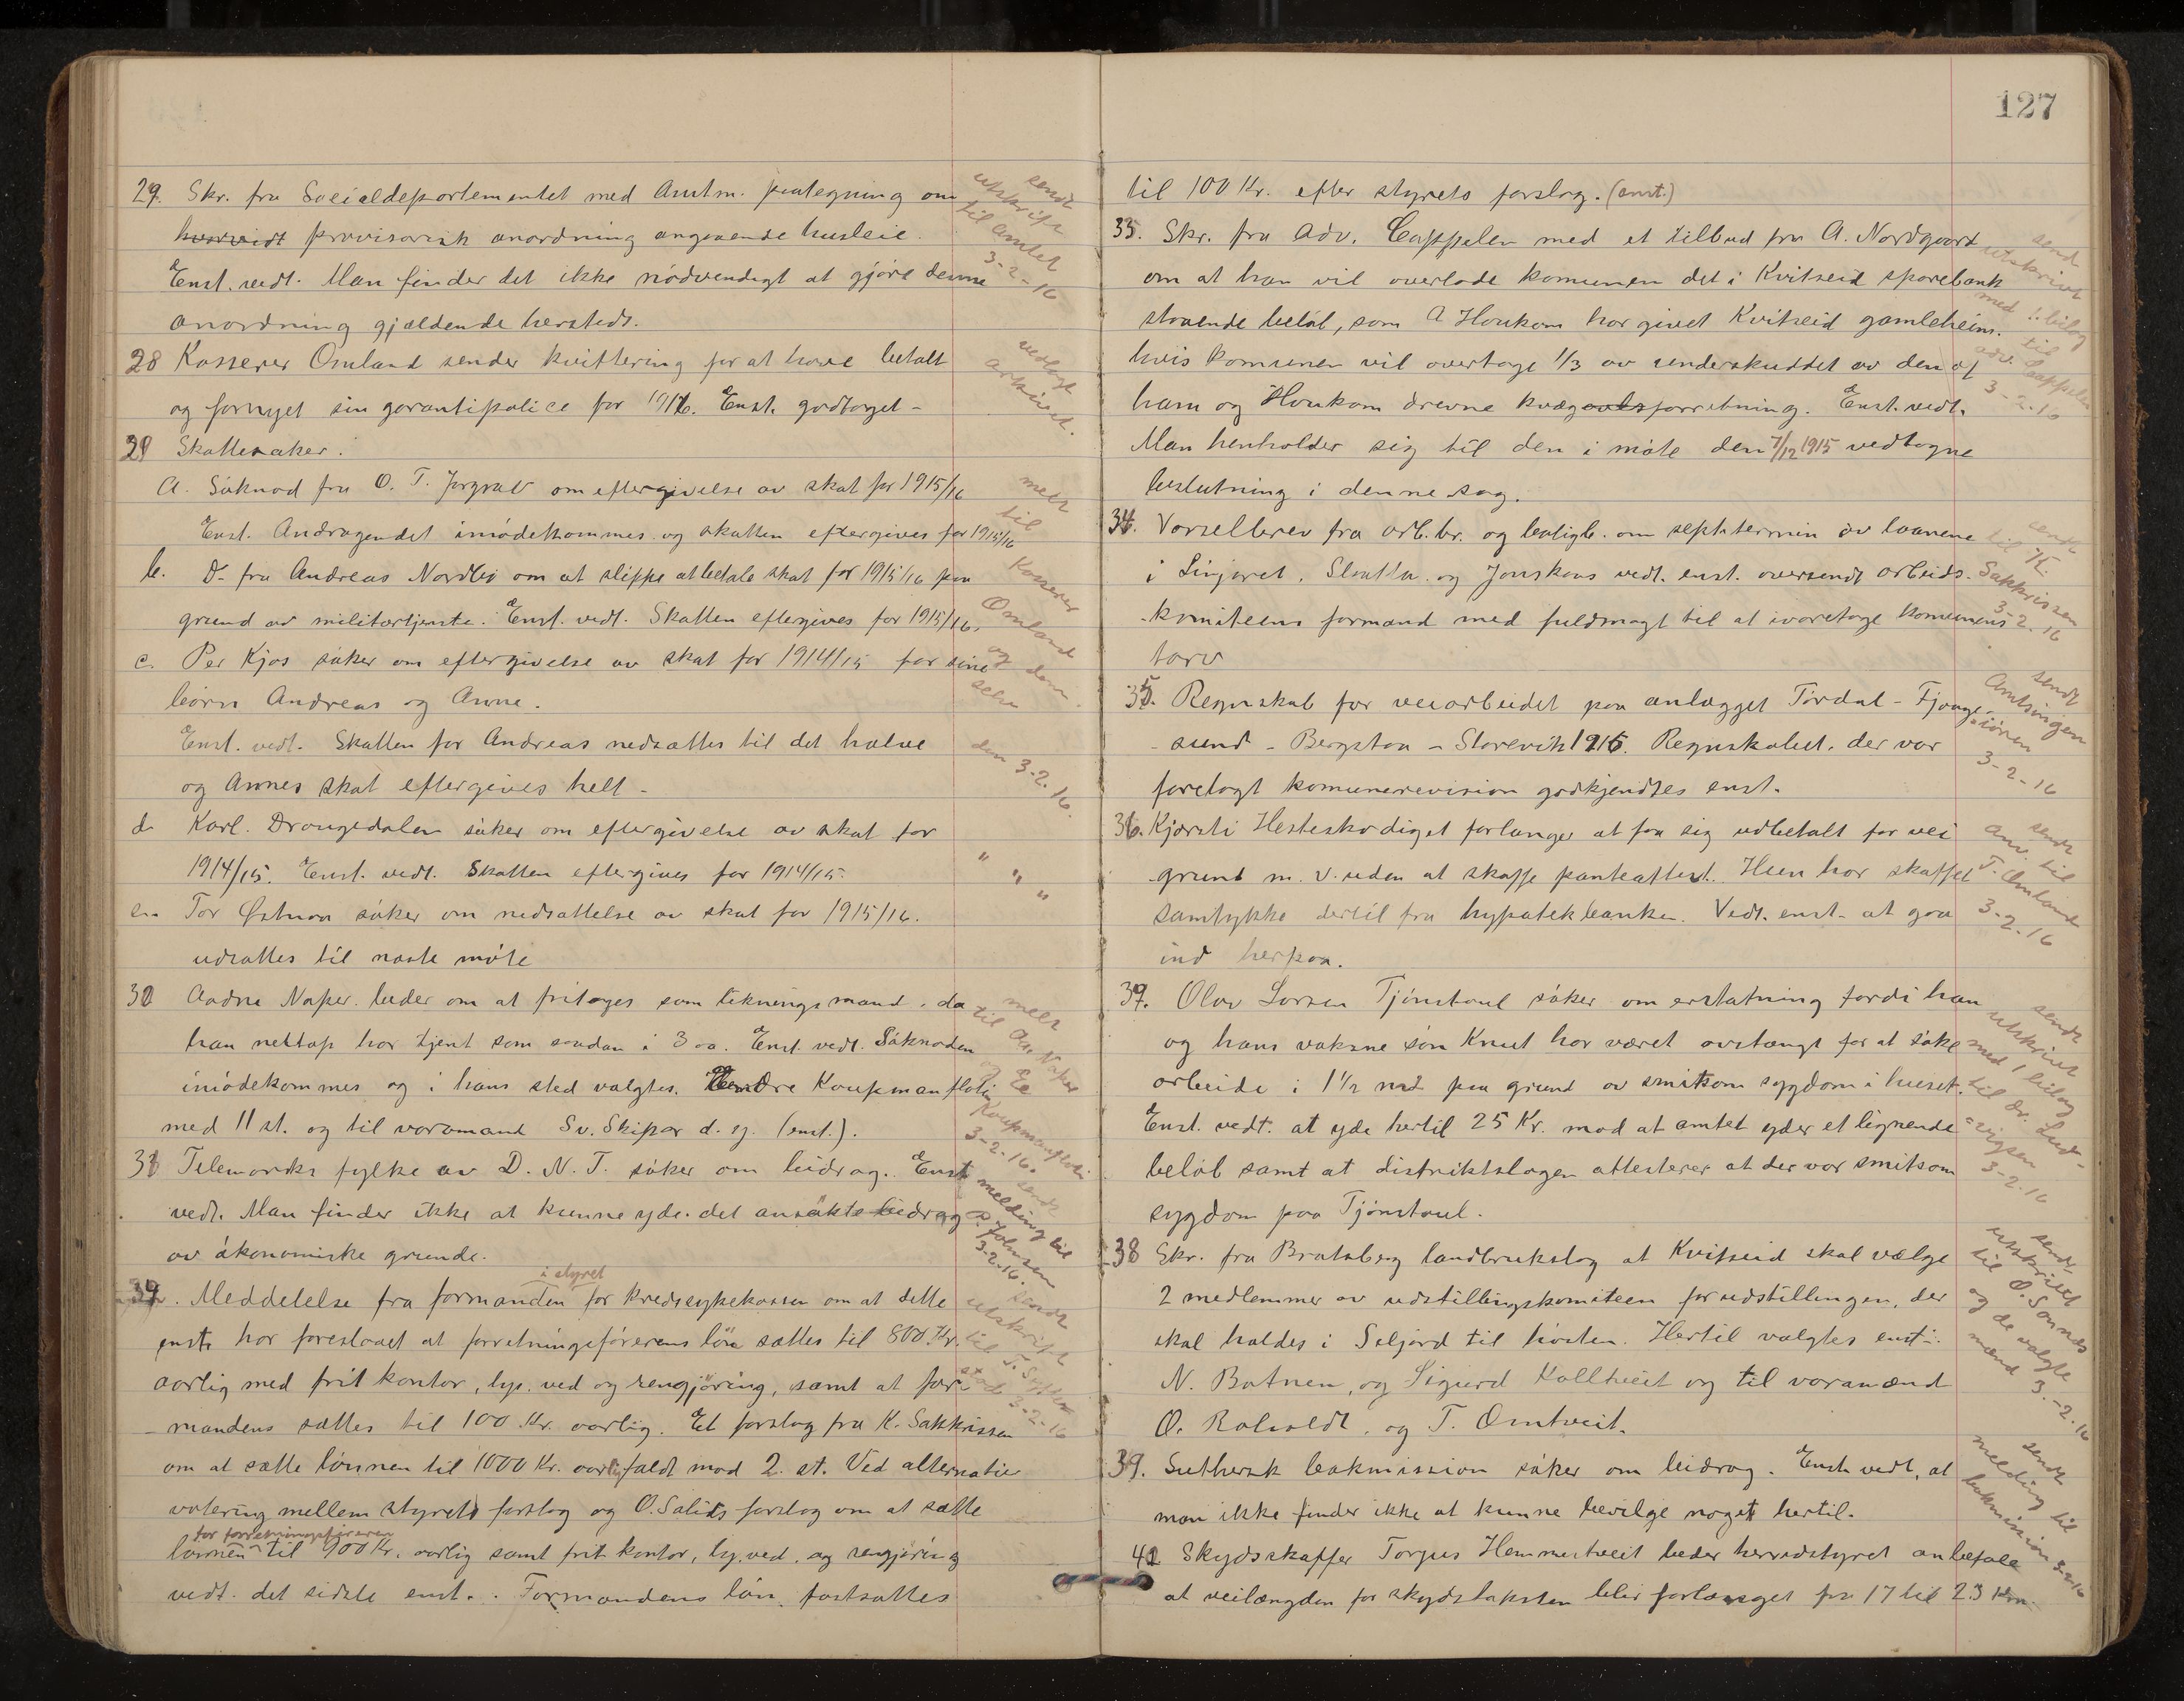 29. Skr. fra Socialdepartementet med Amtm. paategning om
hvorvidt provisorisk anordning angaaende husleie.
Enst. vedt. Man finder det ikke nödvendigt at gjöre denne
anordning gjældende hersteds.
sendt
utskrift
til amtet
3-2-16
28 Kasserer Omland sender kvittering for at have betalt
og fornyet sin garantipolice for 1916. Enst. godtaget -
vedlagt
arkivet.
29 Skattesaker.
a. Söknad fra O. T. om eftergivelse av skat for 1915/16
Enst. Andragendet imödekommes og skatten eftergives for 1915/16
b. D- fra Andreas Nordbö om at slippe at betale skat for 1915/16 paa
grund av militærtjeneste. Enst. vedt. Skatten eftergives for 1915/16.
c. Per Kjos söker om eftergivelse av skat for 1914/15 for sine
börn Andreas og Anne.
Enst. vedt. Skatten for Andreas nedsættes til det halve
og Annes skat eftergives helt -
d. Karl Drangedalen söker om eftergivelse av skat for
1914/15. Enst. vedt. Skatten eftergives for 1914/15.
e. Tor söker om nedsættelse av skat for 1915/16.
udsættes til næste möte
meldt
til
Kasserer
Omland
og dem
selv
den 3-2.16.
" " "
30 Aadne Naper beder om at fritages som lekningsmand, da
han nettop har tjent som saadan i 3 aa. Enst. vedt. Söknaden
imödekommes og i hans sted valgtes Endre Kaupmanflotin
med 11 st. og til varamand Sv. Skipar d. y. (enst.).
meldt
til Aa. Naper
og E
Kaupmanflotin
3-2-16.
31 Telemarks fylke av D. N. T. söker om bidrag. Enst.
vedt. Man finder ikke at kunne yde det ansökte bidrag
av ökonomiske grunde.
sendt
melding til
P. Johnsen
3-2-16.
32. Meddelelse fra formanden i styret for Kredssykekassen om at dette
enst. har foreslaaet at forretningsförerens lön sættes til 800 Kr.
aarlig med frit kontor, lys, ved og rengjöring, samt at for-
mandens sættes til 100 Kr. aarlig. Et forslag fra K. Sakkrissen
om at sætte lönnen til 1000 Kr. aarlig faldt mod 2. st. Ved alternativ
votering mellem styrets forslag og O. Salids forslag om at sætte
lönnen for forretningsföreren til 900 Kr. aarlig samt frit kontor, lys, ved, og rengjöring
vedt. det sidste enst. Formandens lön fastsættes
sendt
utskrift
til T.
3-2-16
127
til 100 Kr. efter styrets forslag. (enst.)
33. Skr. fra Adv. Cappelen med et tilbud fra A. Nordgaard
om at han vil overlade komunen det i Kvitseid sparebank
staaende belöb, som A Haukom har givet Kvitseid gamleheim.
hvis komunen vil overtage 1/3 av underskuddet av den af
ham og Haukom drevne kvægavlsforretning. Enst. vedt.
Man henholder sig til den i möte den 7/12 1915 vedtagne
beslutning i denne sag.
send
utskrivt
med 1. bilag
til
adv. Cappelen
3-2.16
34. Varselbrev fra arb.br. og boligb. om septtermin av laanene
i Linjaret, Slaatta og Jonskaas vedt. enst. oversendt arbeids-
-komiteens formand med fuldmagt til at ivaretage komunens
tarv
sendt
til K.
Sakkrissen
3-2.16
35. Regnskab for veiarbeidet paa anlægget Tördal - Fjaage-
sund - Bergstaa - Storevik 1915. Regnskabet, der var
foretagt komunerevision godkjendtes enst.
sendt
Amtsingen
iören
3-2-16
36. Kjersti Hesteskodiget forlanger at faa sig udbetalt for vei
grund m. v. uden at skaffe panteattest. Hun har skaffet
samtykke dertil fra hypotekbanken. Vedt. enst. at gaa
ind herpaa.
sendt
anv. til
T. Omland
3-2.16
37. Olav Larsen Tjönstaul söker om erstatning fordi han
og hans voksne sön Knut har været avstængt for at söke
arbeide i 1 1/2 md paa grund av smitsom sygdom i huset.
Enst. vedt. at yde hertil 25 Kr. mod at amtet yder et lignende
belöb samt at distriktslægen attesterer at der var smitsom
sygdom paa Tjönstaul.
sendt
utskrivt
med 1 bilag
til dr. Lud-
vigsen
3-2.16
38 Skr. fra Bratsberg landbrukslag at Kvitseid skal vælge
2 medlemmer av udstillingskomiteen for udstillingen, der
skal holdes i Seljord til hösten. Hertil valgtes enst:
N. Botnen, og Sigurd Kolltveit og til varamænd
O. Roholdt, og T. Omtveit.
sendt
utskrivt
til O. Sonnes
og de valgte
mænd 3.-2.16
39. Luthersk bokmission söker om bidrag. Enst. vedt. at
man ikke finder ikke at kunne bevilge noget hertil.
sendt
melding til
bokmission 3-2-16
42 Skydsskaffer Torgus Hemmestveit beder herredstyret anbefale
at veilængden for skydstaksten blir forlænget fra 17 til 23 Km.